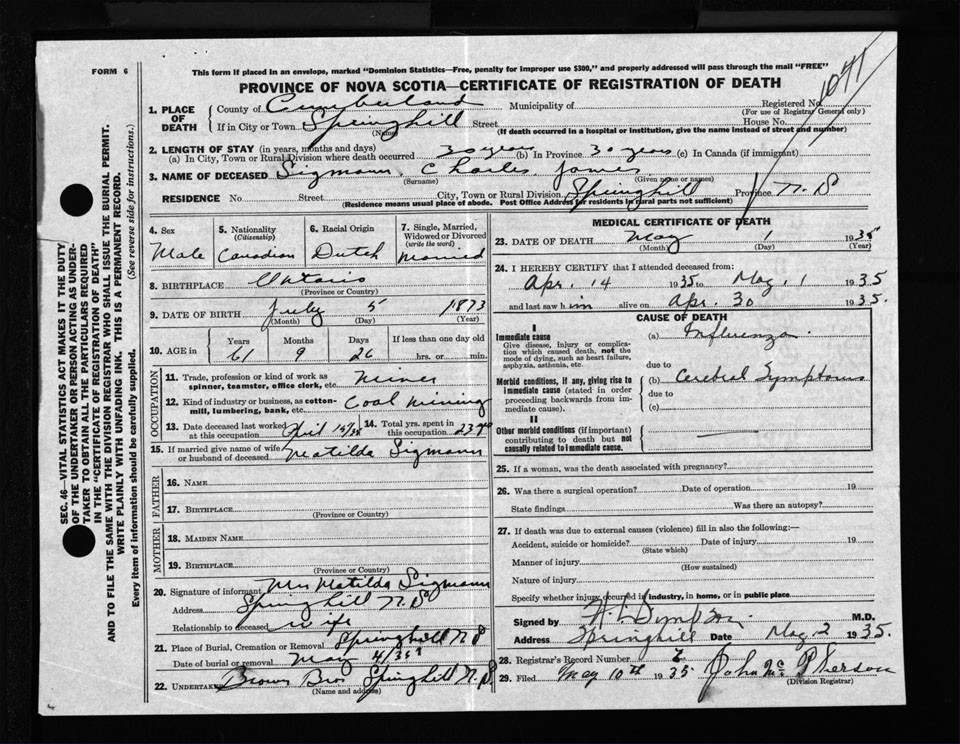 FORM 6
This form if placed in an envelope, marked "Dominion Statistics—Free, penalty for improper use $300," and properly addressed will pass through the mail "FREE"
PROVINCE OF NOVA SCOTIA—CERTIFICATE OF REGISTRATION OF DEATH
1071
1. PLACE OF DEATH
County of Cumberland Municipality of Registered No.
(For use of Registrar General only)
If in City or Town Springhill Street House No.
(Name) (If death occurred in a hospital or institution, give the name instead of street and number)
2. LENGTH OF STAY (in years, months and days)
(a) In City, Town or Rural Division where death occurred 30 years (b) In Province 30 years (c) In Canada (if immigrant)
3. NAME OF DECEASED Sigmann Charles James
(Surname) (Given name or names)
RESIDENCE No. Street City, Town or Rural Division Springhill Province N.S
(Residence means usual place of abode. Post Office Address for residents in rural parts not sufficient)
4. Sex
Male
5. Nationality
(Citizenship)
Canadian
6. Racial Origin
Dutch
7. Single, Married,
Widowed or Divorced
(write the word)
Married
8. BIRTHPLACE Ontario
(Province or Country)
9. DATE OF BIRTH July 5 1873
(Month) (Day) (Year)
10. AGE in Years Months Days If less than one day old
61 9 26 hrs. or min.
OCCUPATION
11. Trade, profession or kind of work as
spinner, teamster, office clerk, etc. Miner
12. Kind of industry or business, as cotton-
mill, lumbering, bank, etc. Coal Mining
13. Date deceased last worked
at this occupation April 14. Total yrs. spent in
this occupation
15. If married give name of wife
or husband of deceased Matilda Sigmann
FATHER
16. NAME
17. BIRTHPLACE
(Province or Country)
MOTHER
18. MAIDEN NAME
19. BIRTHPLACE
(Province or Country)
20. Signature of informant Mrs Matilda Sigmann
Address Springhill N.S
Relationship to deceased Wife
21. Place of Burial, Cremation or Removal Springhill N.S
Date of burial or removal May 4/35
22. UNDERTAKER Brown Bros Springhill N.S
(Name and address)
MEDICAL CERTIFICATE OF DEATH
23. DATE OF DEATH May 1 1935
(Month) (Day) (Year)
24. I HEREBY CERTIFY that I attended deceased from:
Apr. 14 1935 to May 1 1935
and last saw him alive on Apr. 30 1935.
CAUSE OF DEATH
I
Immediate cause
Give disease, injury or complica-
tion which caused death, not the
mode of dying, such as heart failure,
asphyxia, asthenia, etc.
(a) Influenza
due to
Morbid conditions, if any, giving rise to
immediate cause (stated in order
proceeding backwards from im-
mediate cause).
(b) Cerebral Symptoms
due to
(c)
II
Other morbid conditions (if important)
contributing to death but not
causally related to immediate cause.
25. If a woman, was the death associated with pregnancy?
26. Was there a surgical operation? Date of operation 19
State findings Was there an autopsy?
27. If death was due to external causes (violence) fill in also the following:—
Accident, suicide or homicide? Date of injury 19
(State which)
Manner of injury
(How sustained)
Nature of injury
Specify whether injury occurred in industry, in home, or in public place
Signed by M.D.
Address Springhill Date May 2 1935.
28. Registrar's Record Number
29. Filed May 10th 1935 John McPherson
(Division Registrar)
SEC. 46—VITAL STATISTICS ACT MAKES IT THE DUTY
OF THE UNDERTAKER OR PERSON ACTING AS UNDER-
TAKER TO OBTAIN ALL THE PARTICULARS REQUIRED
IN THE "CERTIFICATE OF REGISTRATION OF DEATH"
AND TO FILE THE SAME WITH THE DIVISION REGISTRAR WHO SHALL ISSUE THE BURIAL PERMIT.
WRITE PLAINLY WITH UNFADING INK. THIS IS A PERMANENT RECORD.
Every item of information should be carefully supplied. (See reverse side for instructions.)